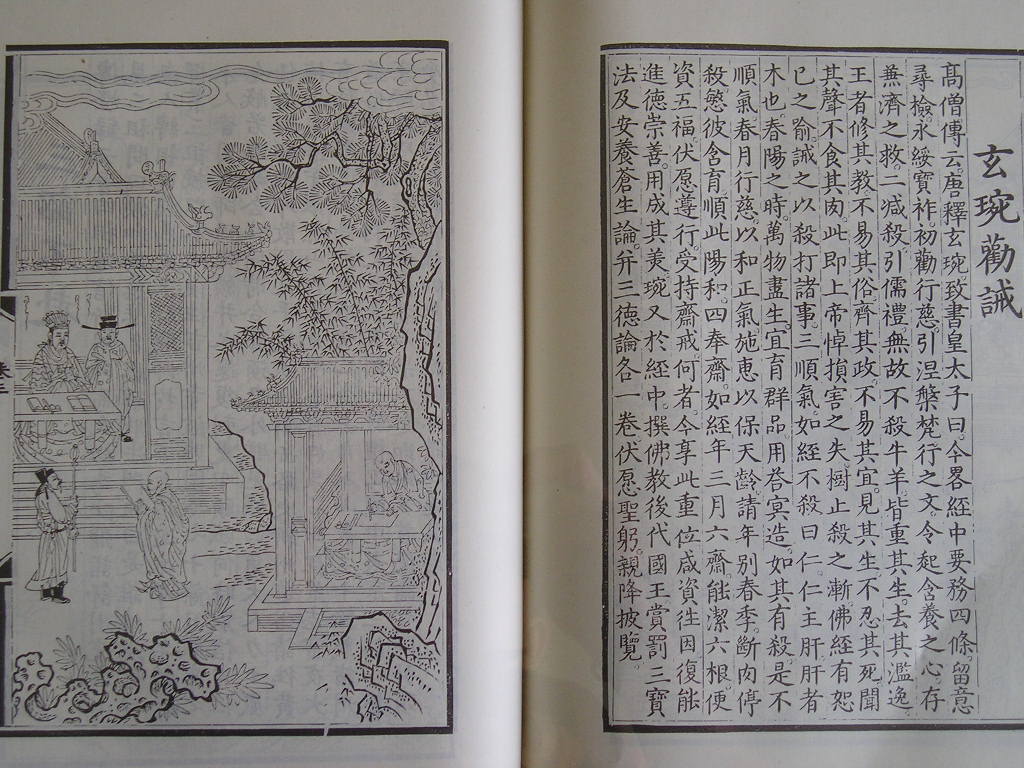 玄琬勸誡
高僧傳云。唐釋玄琬致書皇太子曰。今畧經中要務四條。留意
尋撿。永綏寶祚。初勸行慈。引涅槃梵行之文。令起含養之心。存
兼濟之救。二減殺。引儒禮無故不殺牛羊。皆重其生。去其濫逸。
王者修其教不易其俗。齊其政。不易其宜。見其生不忍其死。聞
其聲不食其肉。此即上帝悼損害之失。樹止殺之漸。佛經有恕
己之喻。誡之以殺打諸事。三順氣。如經不殺曰仁。仁主肝。肝者
木也。春陽之時。萬物盡生。宜育群品。用荅冥造。如其有殺。是不
順氣。春月行慈。以和正氣。施惠以保天齡。請年別春季。斷肉停
殺。慜彼含育。順此陽和。四奉齋。如經年三月六齋。能潔六根。便
資五福。伏愿遵行。受持齋戒。何者。今享此重位。咸資往因。復能
進德崇善。用成其美。琬又於經中撰佛教後代國王賞罰三寶
法。及安養蒼生論。并三德論。各一卷。伏愿聖躬。親降披覽。